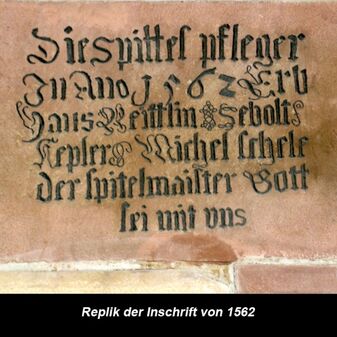 Die Spittel pfleger
In Ano 1562 Erb
Hans Reittlin Sebolt
Kepler Michel schele
der spitelmaister Gott
sei mit vns
Replik der Inschrift von 1562